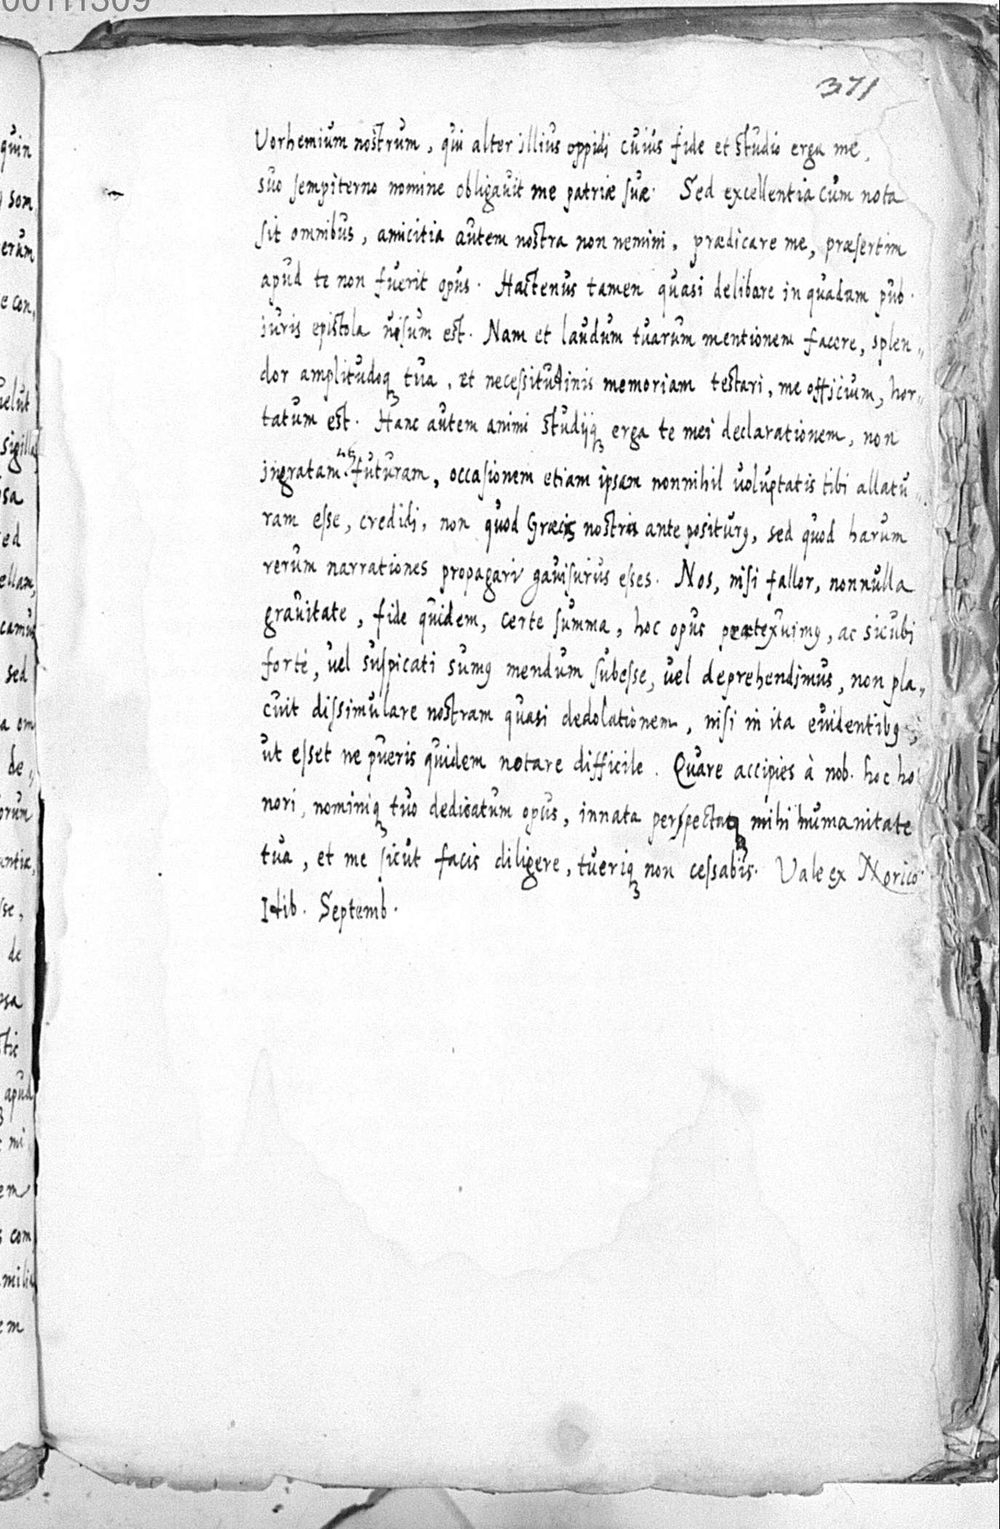 00111309
371
Vorhemium nostrum, qui alter illius oppidi cuius fide et studio erga me,
suo sempiterno nomine obligavit me patriæ suæ. Sed excellentia cum nota
sit omnibus, amicitia autem nostra non nemini, prædicare me, præsertim
apud te non fuerit opus. Hactenus tamen quasi delibare in quadam pub.
iuris epistola uisum est. Nam et laudum tuarum mentionem facere, splen,,
dor amplitudoq₃ tua, et necessitudinis memoriam testari, me officium, hor,,
tatum est. Hanc autem animi studijq₃ erga te mei declarationem, non
ingratam futuram, occasionem etiam ipsam nonnihil uoluptatis tibi allatu,,
ram esse, credidi, non quod Græcis nostris ante positurꝰ, sed quod harum
rerum narrationes propagari gauisurus esses. Nos, nisi fallor, nonnulla
grauitate, fide quidem, certe summa, hoc opus prætexuimꝰ, ac sicubi
forte, uel suspicati sumꝰ mendum subesse, uel deprehendimus, non pla,,
cuit dissimulare nostram quasi dedolationem, nisi in ita euidentibꝰ,
ut esset ne pueris quidem notare difficile. Quare accipies à nob. hoc ho
nori, nominiq₃ tuo dedicatum opus, innata perspectaq₃ mihi humanitate
tua, et me sicut facis diligere, tueriq₃ non cessabis. Vale ex Norico
Idib. Septemb.
quin
som
erum
e con,
uelut
sigilla
sa
ed
ellam,
camus
sed
a om
de,,
orum
untia,
se,
de
sa
stic
apud
mi
em
com
mili
em